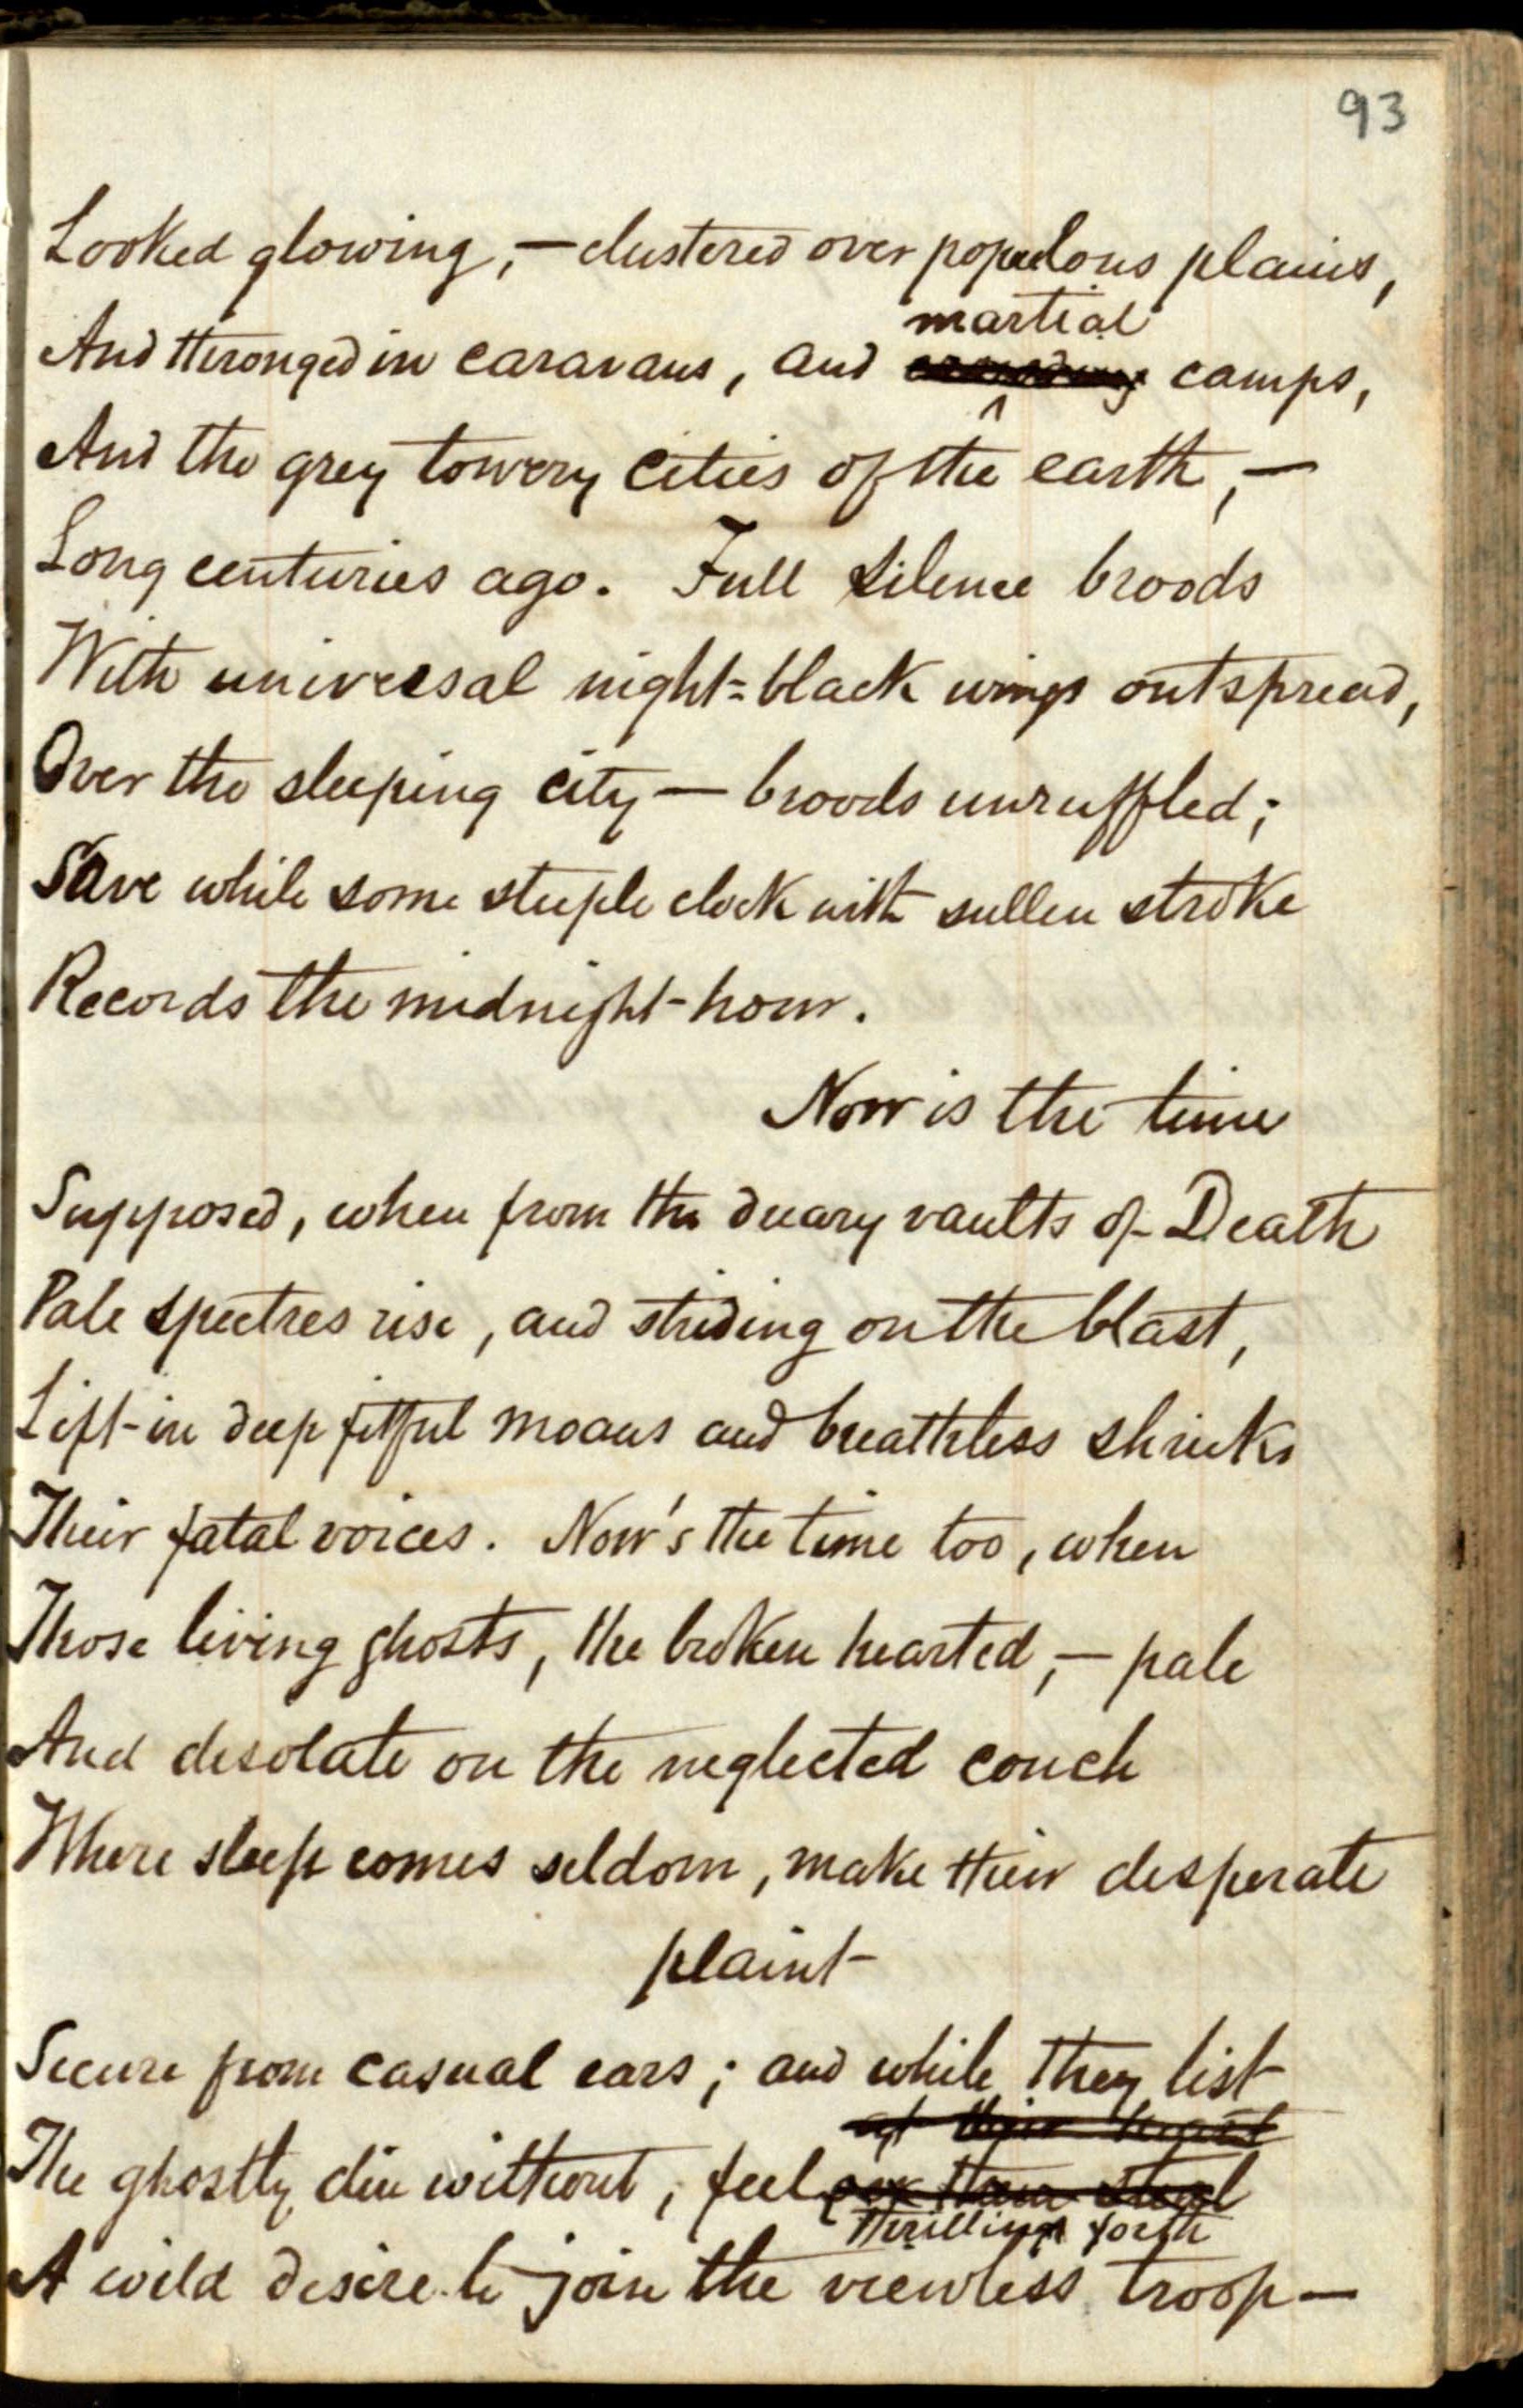 93
Looked glowing, — clustered over populous plains,
martial
And thronged in caravans, and camps,
^
And the grey towery cities of the earth, —
Long centuries ago. Full Silence broods
With universal night=black wings outspread,
Over the sleeping city — broods unruffled;
Save while some steeple clock with sullen stroke
Records the midnight-hour.
Now is the time
Supposed, when from the dreary vaults of Death
Pale spectres rise, and striding on the blast,
Lift in deep fitful moans and breathless shrieks
Their fatal voices. Now's the time too, when
Those living ghosts, the broken hearted, — pale
And desolate on the neglected couch
Where sleep comes seldom, make their desperate
plaint
Secure from casual ears; and while they list
at their heart
The ghostly din without, feel them steal
thrilling forth
A wild desire to join the viewless troop —